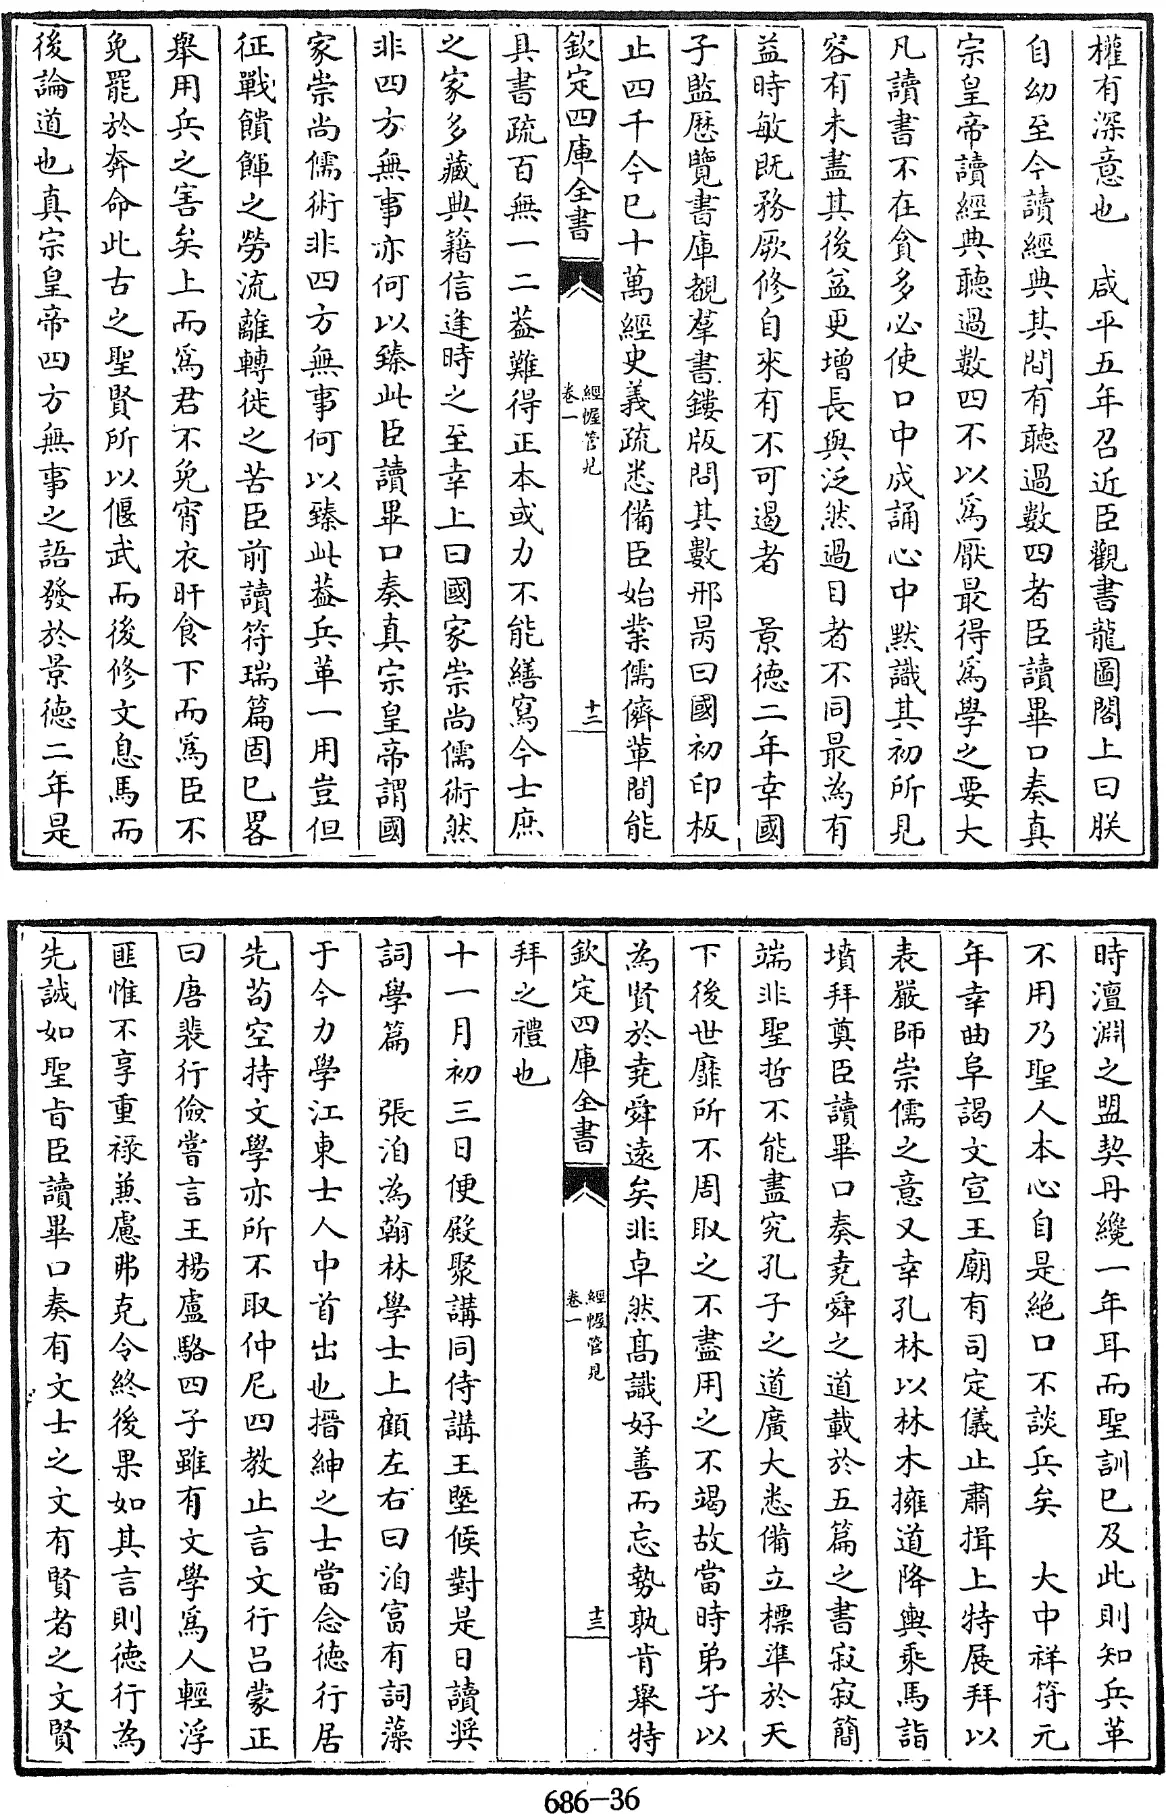 權有深意也　咸平五年召近臣觀書龍圖閣上曰朕
自幼至今讀經典其間有聽過數四者臣讀畢口奏真
宗皇帝讀經典聽過數四不以為厭最得為學之要大
凡讀書不在貪多必使口中成誦心中默識其初所見
容有未盡其後益更增長與泛然過目者不同最為有
益時敏旣務厥修自來有不可遏者　景德二年幸國
子監歷覽書庫觀羣書鏤版問其數邢昺曰國初印板
止四千今已十萬經史義疏悉備臣始業儒儕軰間能
具書疏百無一二葢難得正本或力不能繕寫今士庶
之家多藏典籍信逢時之至幸上曰國家崇尚儒術然
非四方無事亦何以臻此臣讀畢口奏真宗皇帝謂國
家崇尚儒術非四方無事何以臻此葢兵革一用豈但
征戰饋餫之勞流離轉徙之苦臣前讀符瑞篇固已畧
舉用兵之害矣上而為君不免宵衣旰食下而為臣不
免罷於奔命此古之聖賢所以偃武而後修文息馬而
後論道也真宗皇帝四方無事之語發於景德二年是
欽定四庫全書
經幄管見
卷一
十二
時澶淵之盟契丹纔一年耳而聖訓已及此則知兵革
不用乃聖人本心自是絕口不談兵矣　大中祥符元
年幸曲阜謁文宣王廟有司定儀止肅揖上特展拜以
表嚴師崇儒之意又幸孔林以林木擁道降輿乘馬詣
墳拜奠臣讀畢口奏堯舜之道載於五篇之書寂寂簡
端非聖哲不能盡究孔子之道廣大悉備立標準於天
下後世靡所不周取之不盡用之不竭故當時弟子以
為賢於堯舜遠矣非卓然高識好善而忘勢孰肯舉特
拜之禮也
十一月初三日便殿聚講同侍講王塈候對是日讀奬
詞學篇　張洎為翰林學士上顧左右曰洎富有詞藻
于今力學江東士人中首出也搢紳之士當念德行居
先茍空持文學亦所不取仲尼四教止言文行呂蒙正
曰唐裴行儉嘗言王楊盧駱四子雖有文學為人輕浮
匪惟不享重祿兼慮弗克令終後果如其言則德行為
先誠如聖旨臣讀畢口奏有文士之文有賢者之文賢
欽定四庫全書
經幄管見
卷一
十三
686-36